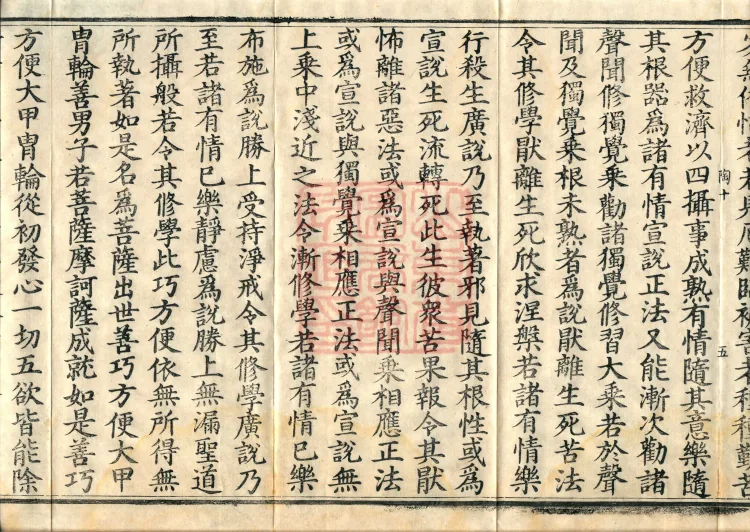 方便救濟以四攝事成熟有情隨其意樂隨
陶十
五
其根器爲諸有情宣說正法又能漸次勸諸
聲聞修獨覺乘勸諸獨覺修習大乘若於聲
聞及獨覺乘根未熟者爲說猒離生死苦法
令其修學猒離生死欣求涅槃若諸有情樂
行殺生廣說乃至執著邪見隨其根性或爲
宣說生死流轉死此生彼衆苦果報令其猒
怖離諸惡法或爲宣說與聲聞乘相應正法
或爲宣說與獨覺乘相應正法或爲宣說無
上乘中淺近之法令漸修學若諸有情巳樂
布施爲說勝上受持淨戒令其修學廣說乃
至若諸有情巳樂靜慮爲說勝上無漏聖道
所攝般若令其修學此巧方便依無所得無
所執著如是名爲菩薩出世善巧方便大甲
冑輪善男子若菩薩摩訶薩成就如是善巧
方便大甲冑輪從初發心一切五欲皆能除